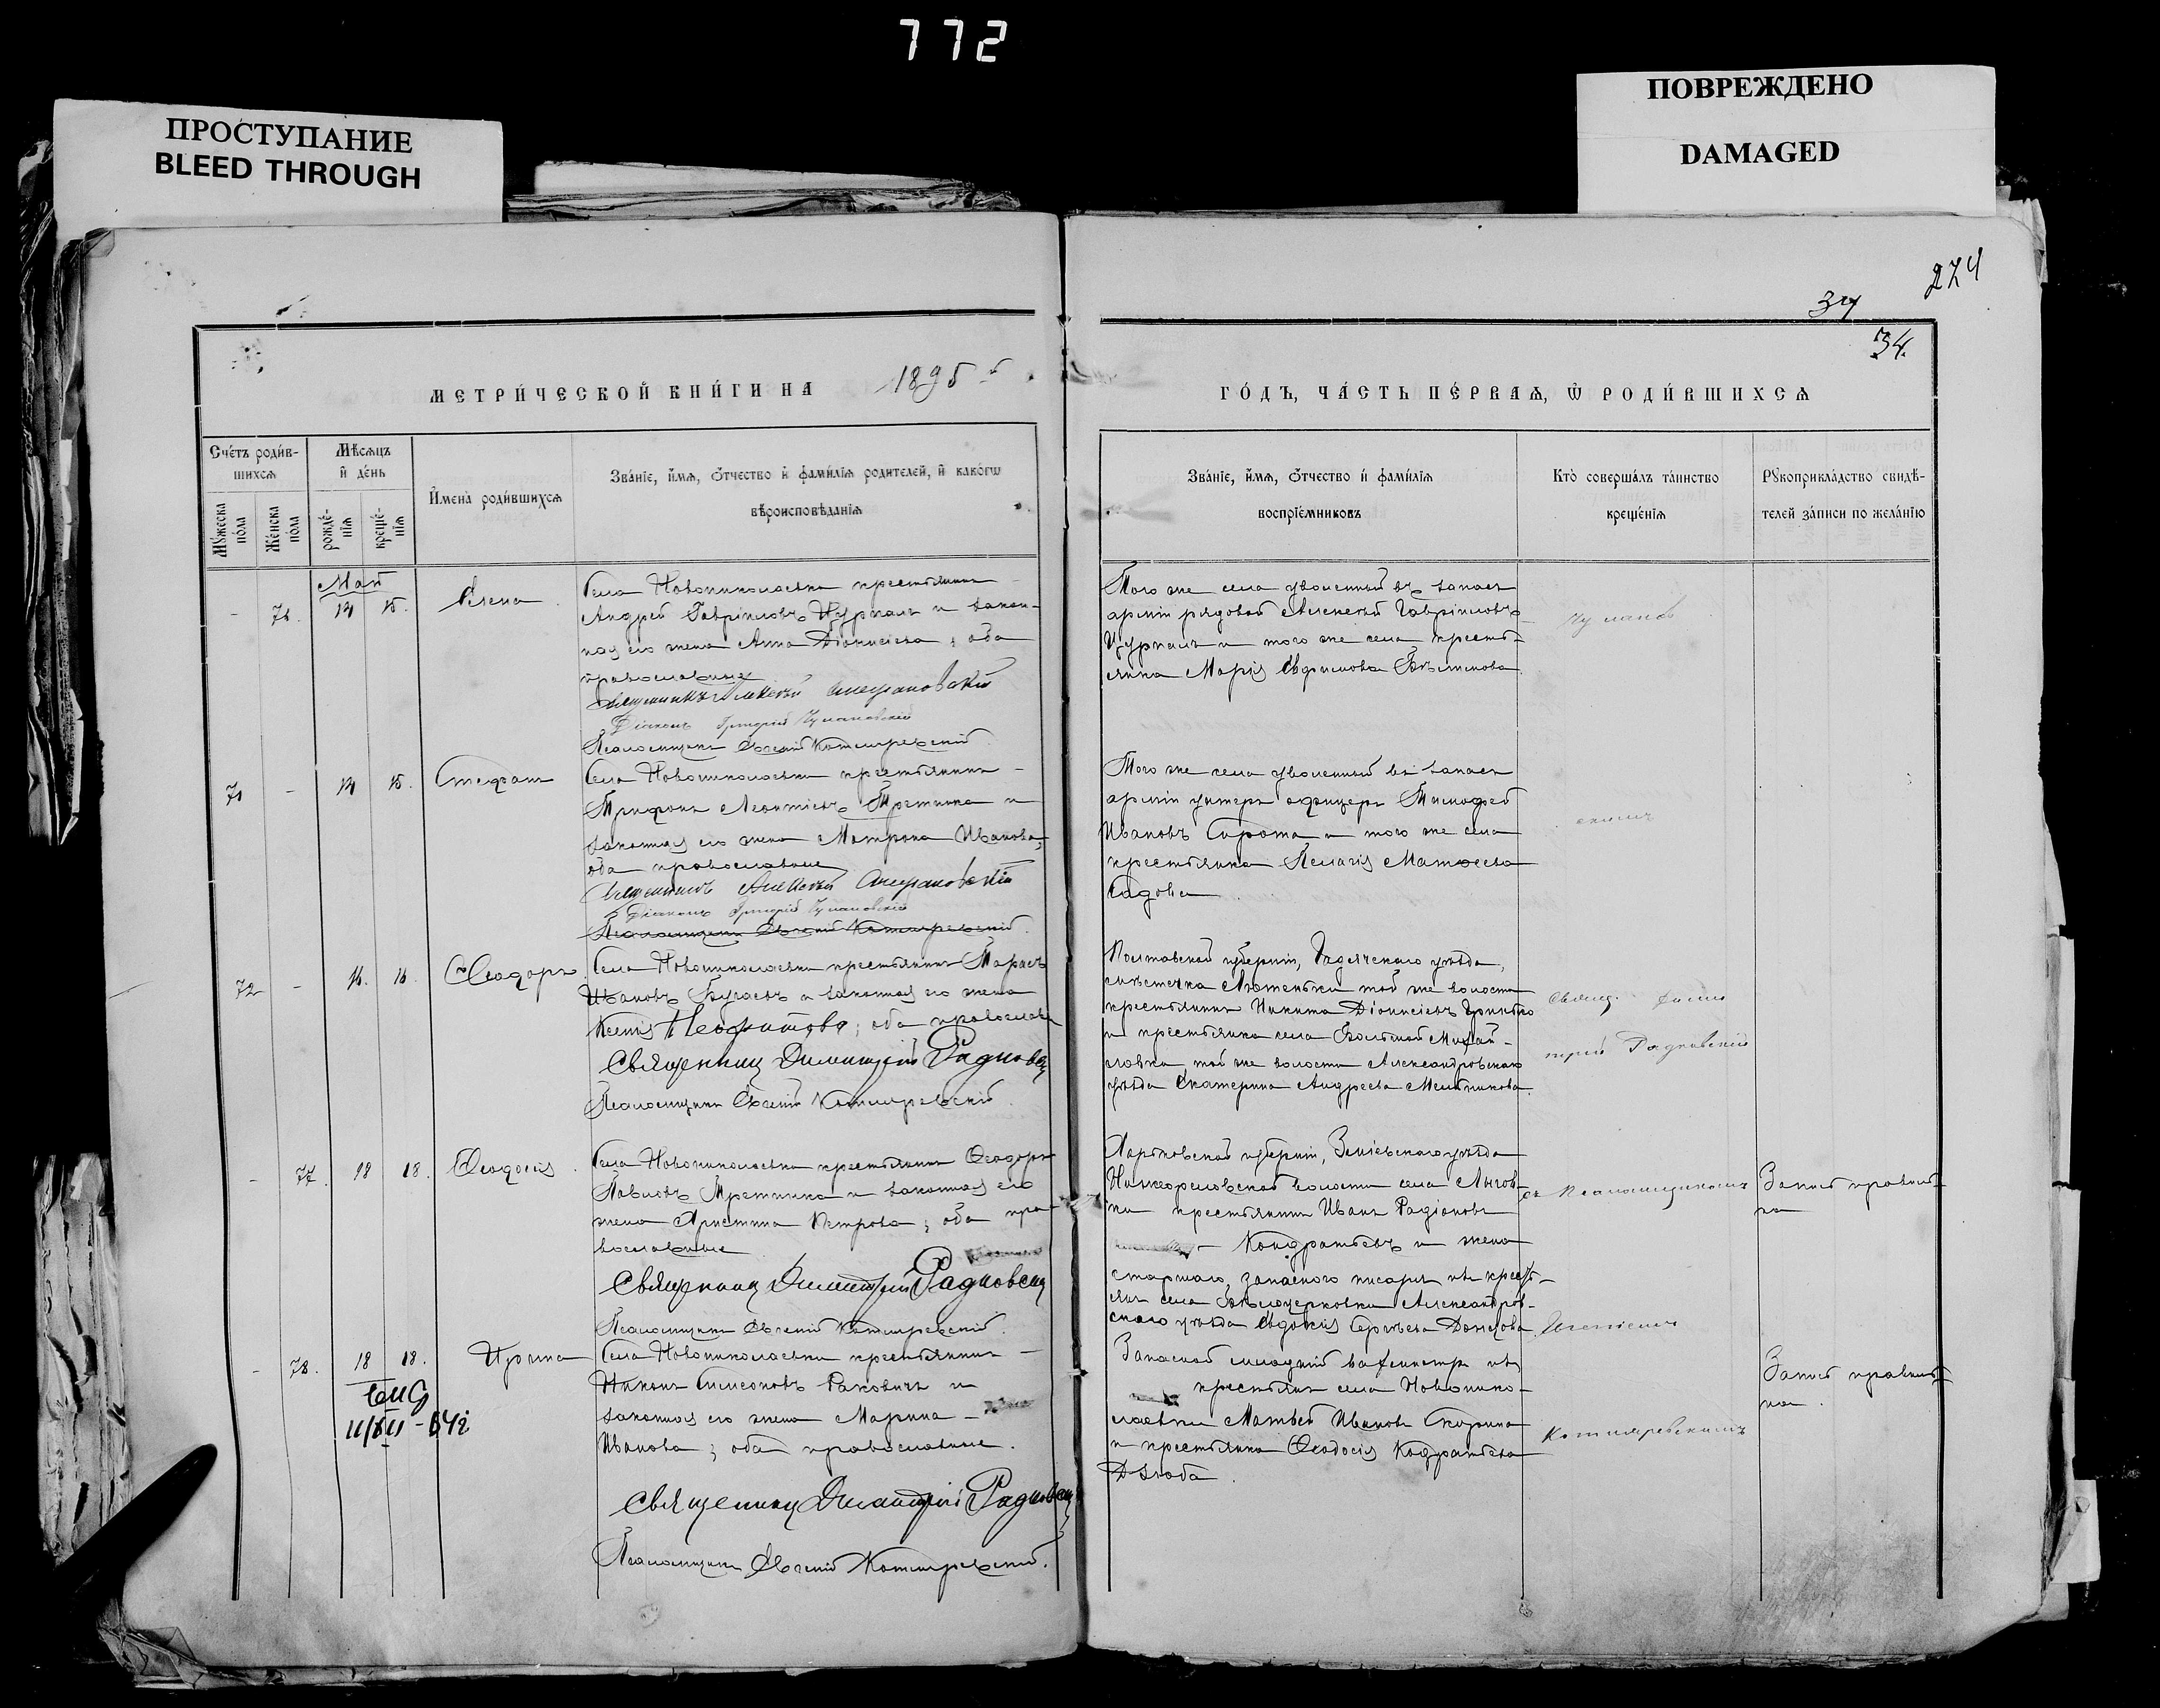 772
ПРОСТУПАНИЕ
BLEED THROUGH
ПОВРЕЖДЕНО
DAMAGED
274
34
34.
МЕТРИ́ЧЕСКОЙ КНИ́ГИ НА 1895
ГО́ДЪ, ЧА́СТЬ ПЕ́РВАѦ, Ѡ҆ РОДИ́ВШИХСѦ
Сче́тъ роди́в-
шихсѧ
Мѣ́сѧцъ
и҆ де́нь
Мꙋ́жеска
по́ла
Же́нска
по́ла
рожде́-
нїѧ
креще́-
нїѧ
И҆мена̀ роди́вшихсѧ
Зва́нїе, и҆́мѧ, ѻ҆́тчество и҆ фами́лїѧ роди́телей, и҆ како́гѡ
вѣроисповѣ́данїѧ
Зва́нїе, и҆́мѧ, ѻ҆́тчество и҆ фами́лїѧ
воспрїе́мниковъ
Кто̀ соверша́лъ та́инство
креще́нїѧ
Рꙋкоприкла́дство свидѣ́-
телей за́писи по жела́нїю
Май
- 76. 14 15. Елена
Села Новониколаевки крестьянинъ
Андрей Гавріиловъ Цуркалъ и закон-
ная его жена Анна Діонисіева; оба
православные
Священникъ Алексій Стефановскій
Діаконъ Григорій Кулановскій
Псаломщикъ Евгеній Котляревскій
Того же села уволенный въ запасъ
арміи рядовой Алексѣй Гавріиловъ
Цуркалъ и того же села кресть-
янка Марія Евфимова
71 - 14 15. Стефанъ
Села Новониколаевки крестьянинъ
Трифонъ Леонтіевъ Третяка и
законная его жена Матрона Иванова;
оба православные
Священникъ Алексій Стефановскій
Діаконъ Григорій Кулановскій
Псаломщикъ Евгеній Котляревскій
Того же села уволенный въ запасъ
арміи унтеръ офицеръ Тимофей
Ивановъ Сирота и того же села
крестьянка Пелагія Матѳеева
Гадова
72 - 16. 16. Ѳеодоръ
Села Новониколаевки крестьянинъ Тарасъ
Ивановъ Бугаевъ и законная его жена
Ксенія Неофитова; оба православ
Священникъ Димитрій Радковск
Псаломщикъ Евгеній Котляревскій
Полтавской губерніи, Гадячскаго уѣзда,
мѣстечка Лютеньки той же волости
крестьянинъ Никита Діонисіевъ Гринько
и крестьянка села Большой Михай-
ловки, той же волости Александровскаго
уѣзда Екатерина Андреева Мельникова.
Свящ. Дими
трій Радковскій
- 77. 18 18. Ѳеодосія
Села Новониколаевки крестьянинъ Ѳеодоръ
Павловъ Третяка и законная его
жена Христина Петрова; оба пра-
вославные
Священникъ Димитрій Радковск
Псаломщикъ Евгеній Котляревскій.
Харьковской губерніи, Зміевскаго уѣзда
Нижеорельской волости села Лигов-
ки крестьянинъ Иванъ Радіоновъ
Кондратьевъ и жена
старшаго, запаснаго писаря изъ кресть-
янъ села Бѣлоцерковки Александров-
скаго уѣзда Евдокія Сергѣева
съ Псаломщикомъ
Евгеніемъ
Запись правиль-
на
- 78. 18 18. Ирина
Села Новониколаевки крестьянинъ
Никонъ Симеоновъ Раковичъ и
законная его жена Марина
Иванова; оба православные.
Священникъ Димитрій Радковск
Псаломщикъ Евгеній Котляревскій.
Запасной младшій вахмистръ изъ
крестьянъ села Новонико-
лаевки Матвей Ивановъ Скорина
и крестьянка Ѳеодосія Кодратьева
Дзюба.
Котляревскимъ
Запись правиль-
на.